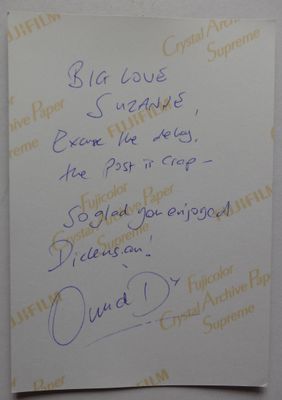 BIG LOVE
SUZANNE,
Excuse the delay,
the Post is crap –
So glad you enjoyed
Dickensian!
FUJIFILM
Crystal Archive Paper
Supreme
Fujicolor
Crystal Archive Paper
Supreme
FUJIFILM
Fujicolor
Crystal Archive Paper
Supreme
FUJIFILM
FUJIFILM
Fujicolor
Crystal Archive Paper
Supreme
FUJIFILM